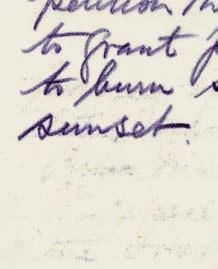 to grant
to burn
sunset.